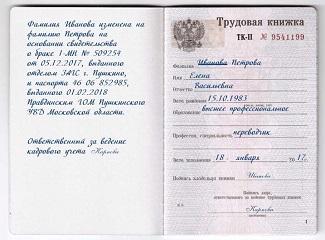 Фамилия Иванова изменена на
фамилию Петрова на
основании свидетельства
о браке I-МН № 509254
от 05.12.2017, выданного
отделом ЗАГС г. Пушкино,
и паспорта 46 06 852985,
выданного 01.02.2018
Правдинским ГОМ Пушкинского
УВД Московской области.
Ответственный за ведение
кадрового учета Карпова
Трудовая книжка
ТК-II № 9541199
Фамилия Иванова Петрова
Имя Елена
Отчество Васильевна
Дата рождения 15.10.1983
Образование высшее профессиональное
Профессия, специальность переводчик
Дата заполнения 18 января 2017 г.
Подпись владельца книжки Иванова
М.П. Подпись лица,
ответственного за ведение трудовых книжек
Карпова
1